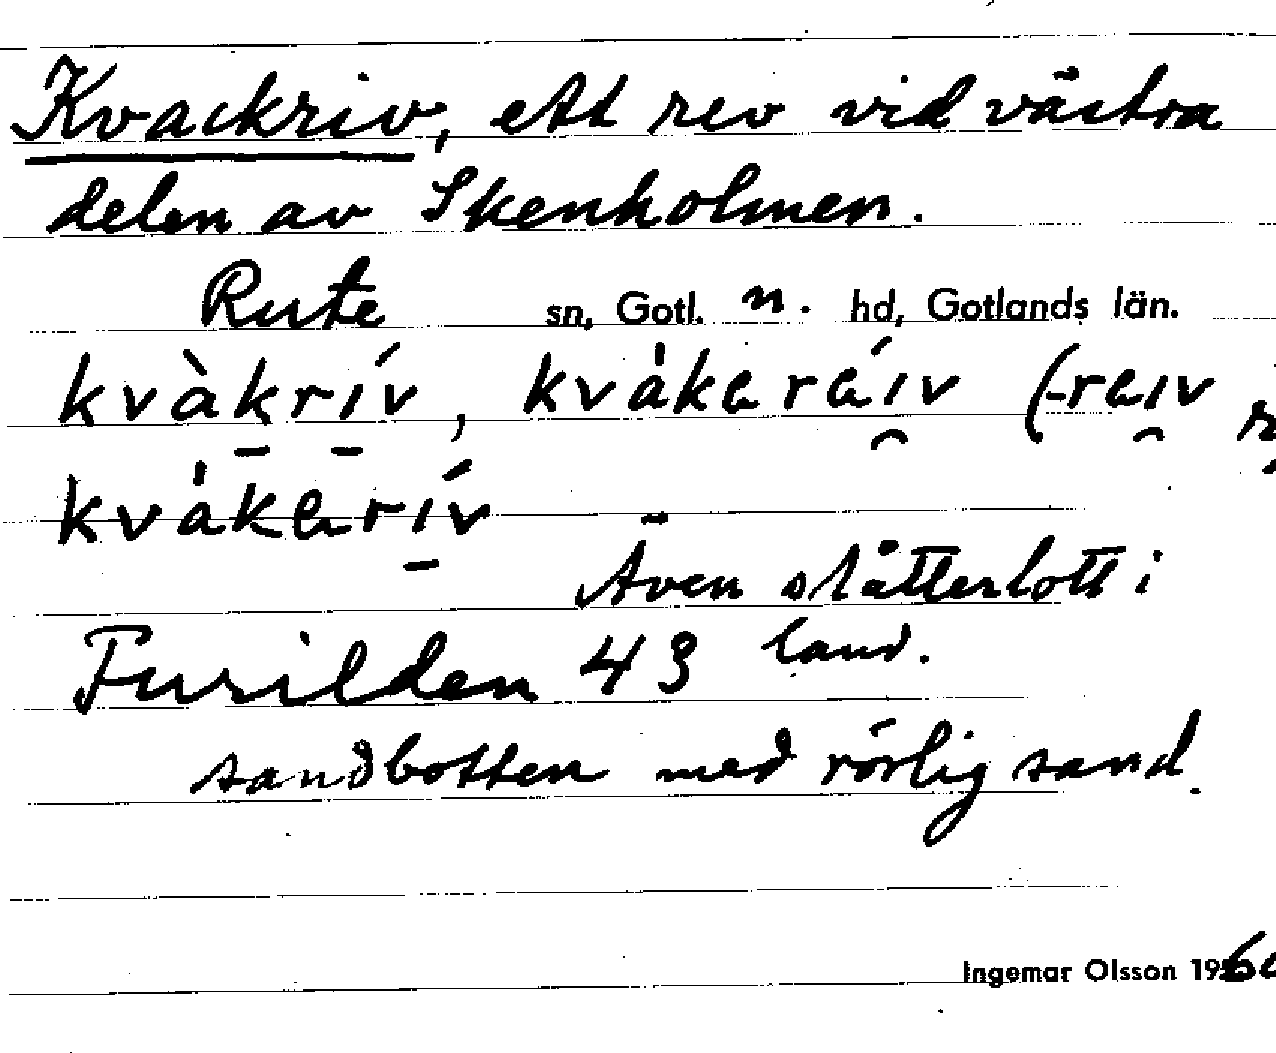 Kvackriv, ett rev vid västra
delen av Skenholmen.
Rute sn, Gotl. n. hd, Gotlands län.
kvàkrív, kvákaráiv (-raiv
kvákarív
Även slåtterlott i
Furilden 43 land.
sandbotten med rörlig sand.
Ingemar Olsson 19